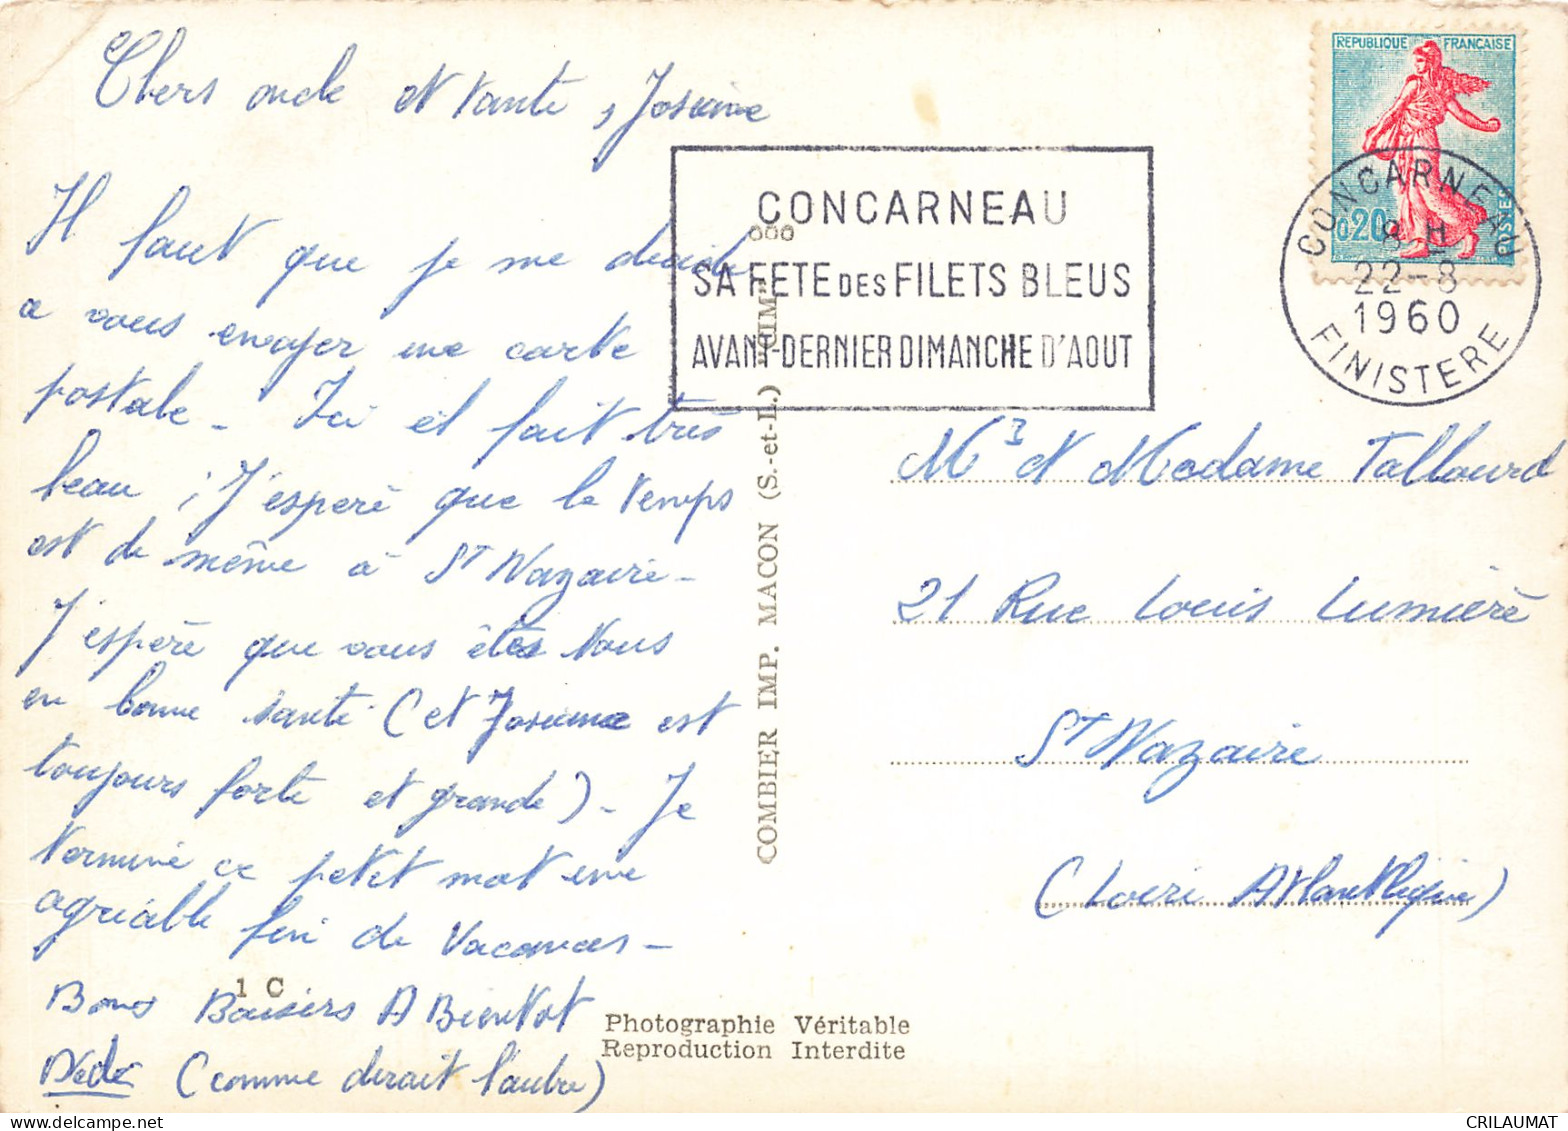 Chers oncle et tante, Josiane
Il faut que je me decide
a vous envoyer une carte
postale - Ici il fait très
beau ; J'esperè que le temps
est de même à St Nazaire -
J'esperè que vous êtes tous
en bonne santé (et Josiane est
toujours forte et grande) - Je
terminè ce petit mot une
agréable fin de Vacances -
Bons Baisers A Bientot
Dédé (comme dirait l'autre)
1 C
CONCARNEAU
SA FETE DES FILETS BLEUS
AVANT-DERNIER DIMANCHE D'AOUT
REPUBLIQUE FRANÇAISE
0,20
POSTES
CONCARNEAU
8 H
22-8
1960
FINISTERE
COMBIER IMP. MACON (S.-et-L.) "CIM"
Mr et Madame Tallourd
21 Rue Louis Lumière
St Nazaire
(Loire Atlantique)
Photographie Véritable
Reproduction Interdite
CRILAUMAT